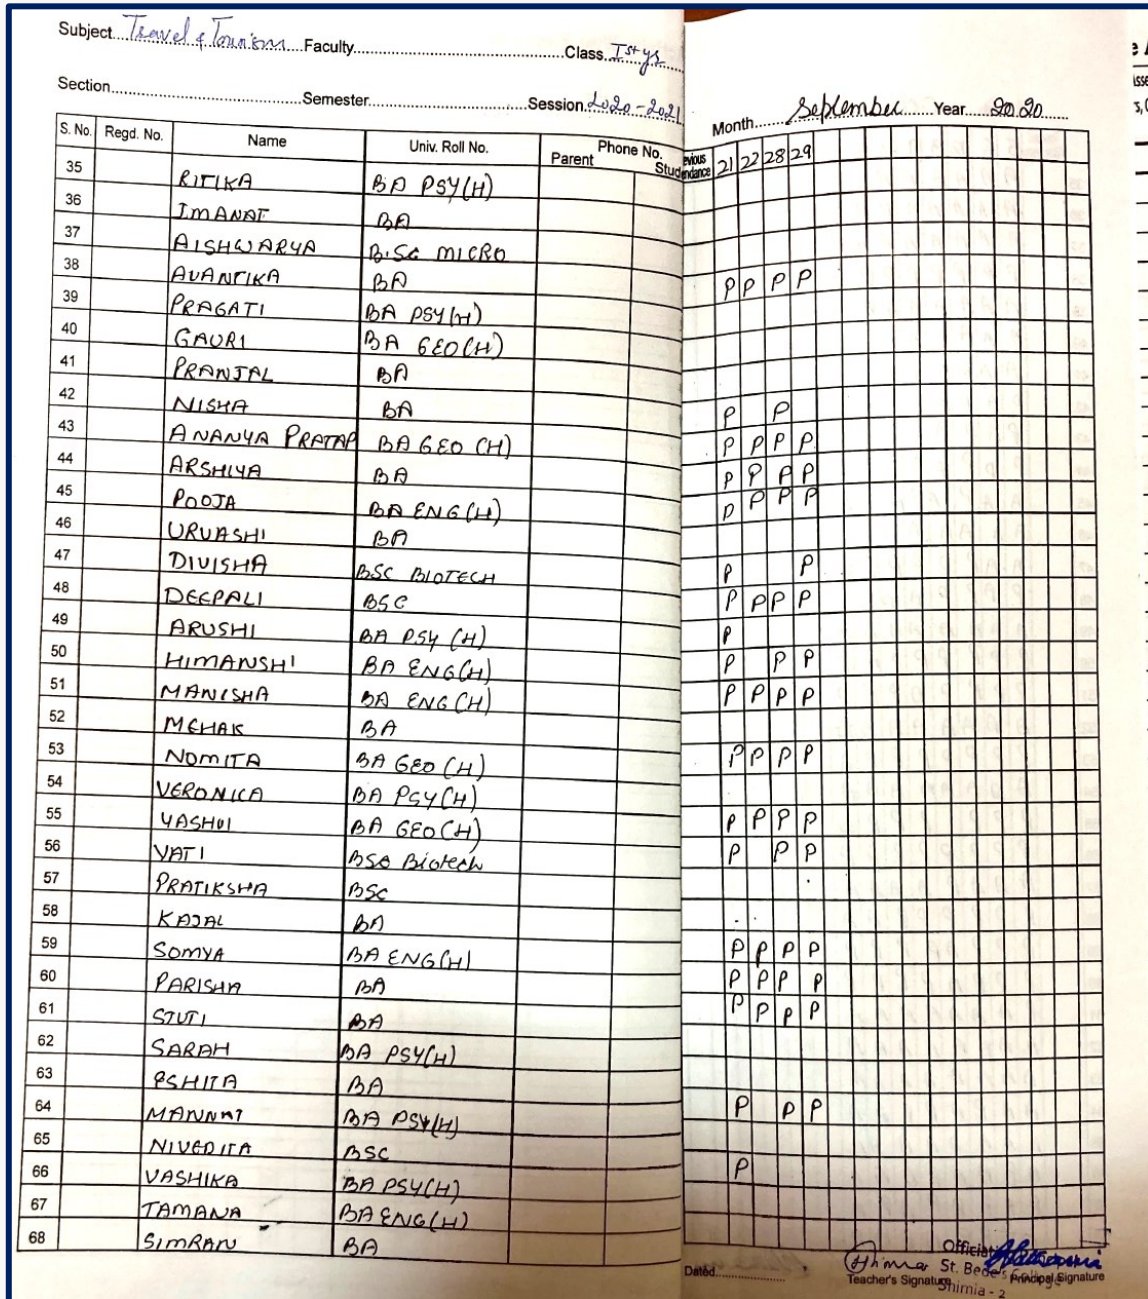 Subject Travel & Tourism Faculty Class Ist yr
Section Semester Session 2020-2021
Month September Year 2020
S. No. Regd. No. Name Univ. Roll No. Phone No. Parent Stud evious endance 21 22 28 29
35 RITIKA BA PSY(H)
36 IMANAT BA
37 AISHWARYA B.SC MICRO
38 AVANTIKA BA P P P P
39 PRAGATI BA PSY(H)
40 GAURI BA GEO(H)
41 PRANJAL BA
42 NISHA BA P P
43 ANANYA PRATAP BA GEO (H) P P P P
44 ARSHIYA BA P P P P
45 POOJA BA ENG(H) P P P P
46 URVASHI BA
47 DIVISHA BSC BIOTECH P P
48 DEEPALI BSC P P P P
49 ARUSHI BA PSY (H) P
50 HIMANSHI BA ENG(H) P P P
51 MANISHA BA ENG(H) P P P P
52 MEHAK BA
53 NOMITA BA GEO (H) P P P P
54 VERONICA BA PSY(H)
55 YASHVI BA GEO(H) P P P P
56 VATI BSC Biotech P P P
57 PRATIKSHA BSC
58 KAJAL BA
59 SOMYA BA ENG(H) P P P P
60 PARISHA BA P P P P
61 STUTI BA P P P P
62 SARAH BA PSY(H)
63 ESHITA BA
64 MANNAT BA PSY(H) P P P
65 NIVEDITA BSC
66 VASHIKA BA PSY(H) P
67 TAMANA BA ENG(H)
68 SIMRAN BA
Dated Teacher's Signature Principal Signature
St. Bede's College
Shimla - 2